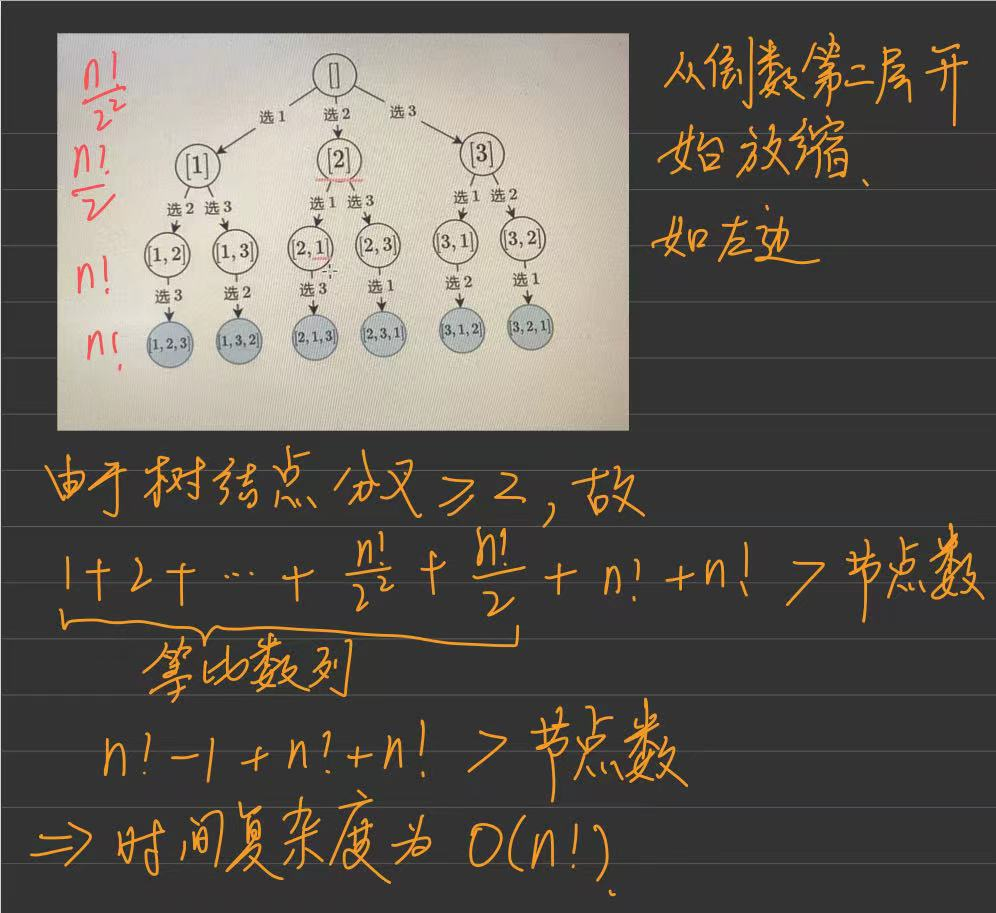 n!/2²
n!/2
n!
n!
[]
选 1 选 2 选 3
[1] [2] [3]
选 2 选 3 选 1 选 3 选 1 选 2
[1, 2] [1, 3] [2, 1] [2, 3] [3, 1] [3, 2]
选 3 选 2 选 3 选 1 选 2 选 1
[1, 2, 3] [1, 3, 2] [2, 1, 3] [2, 3, 1] [3, 1, 2] [3, 2, 1]
从倒数第二层开
始放缩、
如左边
由于树结点分叉 ≥ 2, 故
1 + 2 + … + n!/2² + n!/2 + n! + n! > 节点数
等比数列
n! - 1 + n! + n! > 节点数
=> 时间复杂度为 O(n!).